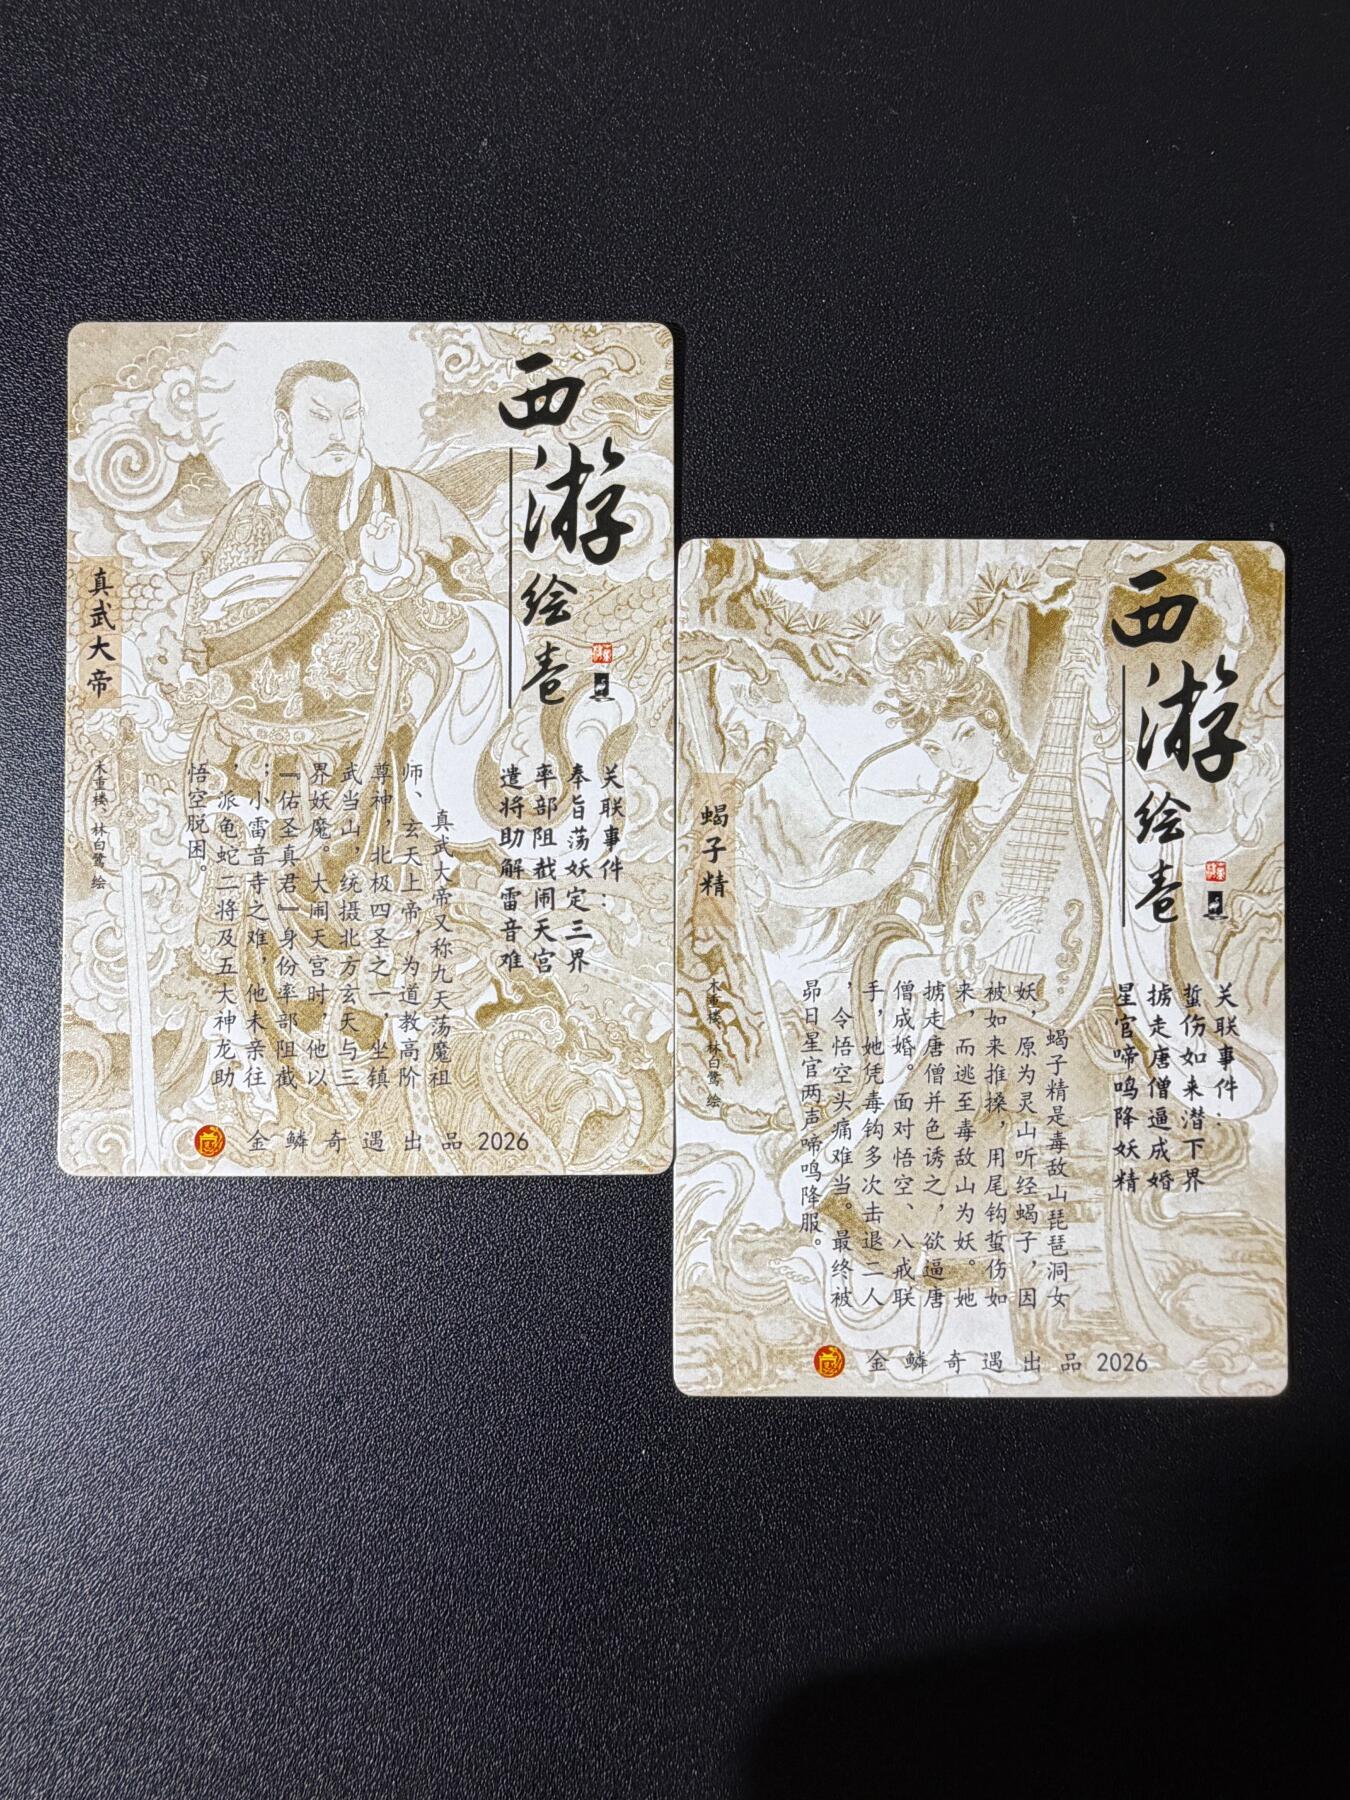 西游
绘卷
真武大帝
木重楼、林白鹭 绘
关联事件：
奉旨荡妖定三界
率部阻截闹天宫
遣将助解雷音难
真武大帝又称九天荡魔祖
师、玄天上帝，为道教高阶
尊神，北极四圣之一，坐镇
武当山，统摄北方玄天与三
界妖魔。大闹天宫时，他以
『佑圣真君』身份率部阻截
；小雷音寺之难，他未亲往
，派龟蛇二将及五大神龙助
悟空脱困。
金鳞奇遇出品 2026
西游
绘卷
蝎子精
木重楼、林白鹭 绘
关联事件：
蜇伤如来潜下界
掳走唐僧逼成婚
星官啼鸣降妖精
蝎子精是毒敌山琵琶洞女
妖，原为灵山听经蝎子，因
被如来推搡，用尾钩蜇伤如
来，而逃至毒敌山为妖。她
掳走唐僧并色诱之，欲逼唐
僧成婚。面对悟空、八戒联
手，她凭毒钩多次击退二人
，令悟空头痛难当。最终被
昴日星官两声啼鸣降服。
金鳞奇遇出品 2026